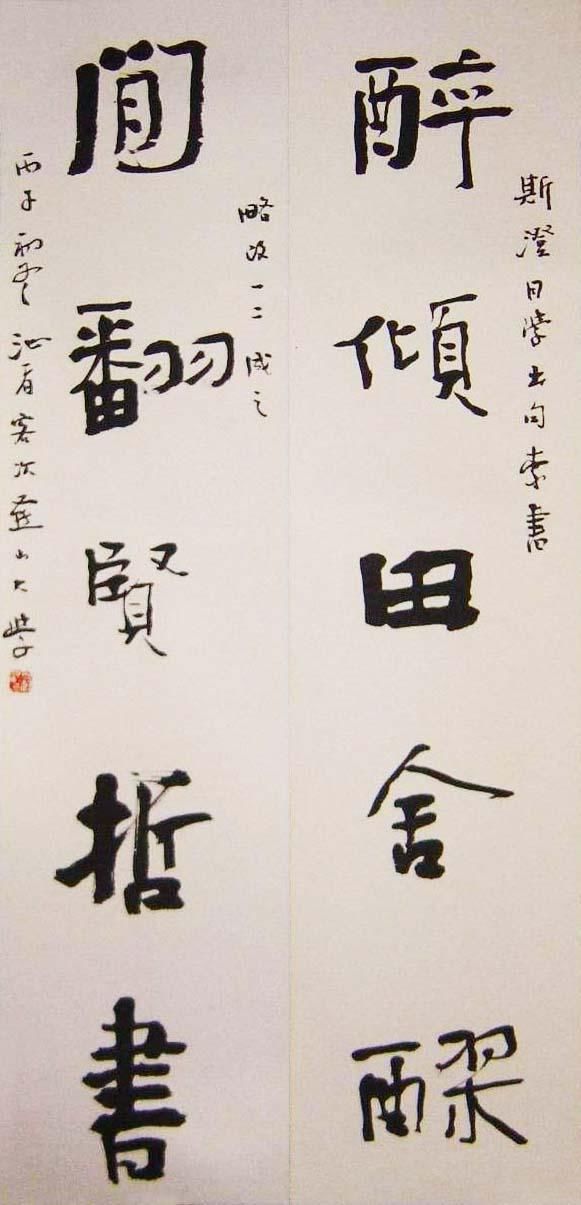 斯澄同學出句索書
醉傾田舍醪
略改一二成之
閒翻賢哲書
丙子初冬客次燕山大學